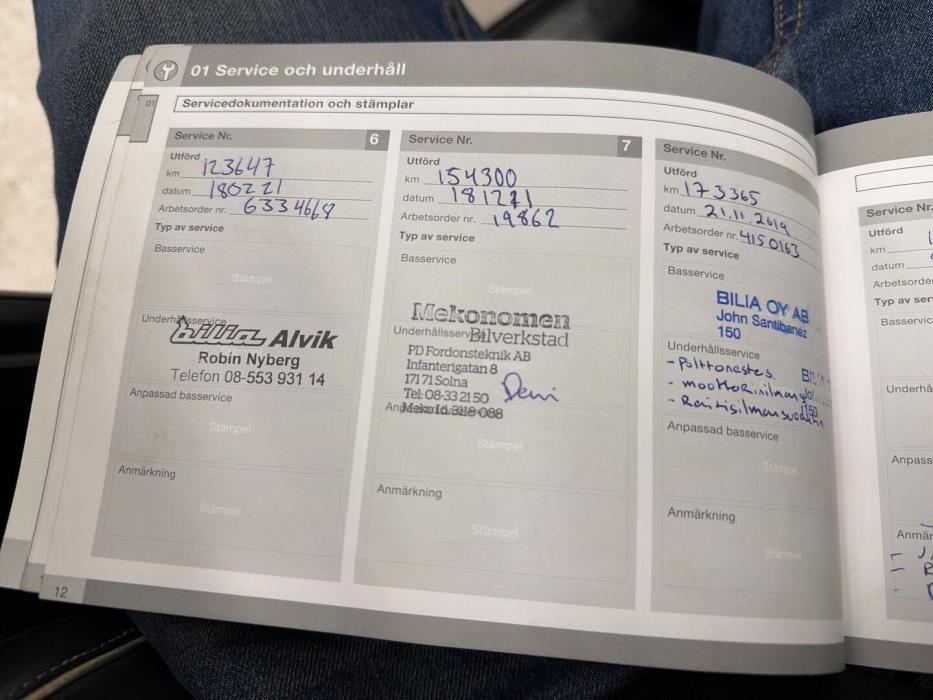 01 Service och underhåll
01
Servicedokumentation och stämplar
Service Nr. 6
Utförd
km 123647
datum 180221
Arbetsorder nr. 6334668
Typ av service
Basservice
Stämpel
Underhållsservice
bilia Alvik
Robin Nyberg
Telefon 08-553 931 14
Anpassad basservice
Stämpel
Anmärkning
Stämpel
12
Service Nr. 7
Utförd
km 154300
datum 181221
Arbetsorder nr. 19862
Typ av service
Basservice
Stämpel
Mekonomen
Bilverkstad
PD Fordonsteknik AB
Infanterigatan 8
171 71 Solna
Tel: 08-33 21 50
Meko Id. 318-088
Stämpel
Anmärkning
Stämpel
Service Nr.
Utförd
km 173365
datum 21.11.2019
Arbetsorder nr. 4150163
Typ av service
Basservice
BILIA OY AB
John Santibanez
150
Underhållsservice
- Polttonestes.
- moottorinilman
- Raitisilmansuodatin
Anpassad basservice
Stämpel
Anmärkning
Stämpel
Service Nr.
Utförd
km
datum
Arbetsorder
Typ av ser
Basservic
Underhå
Anpass
Anmär